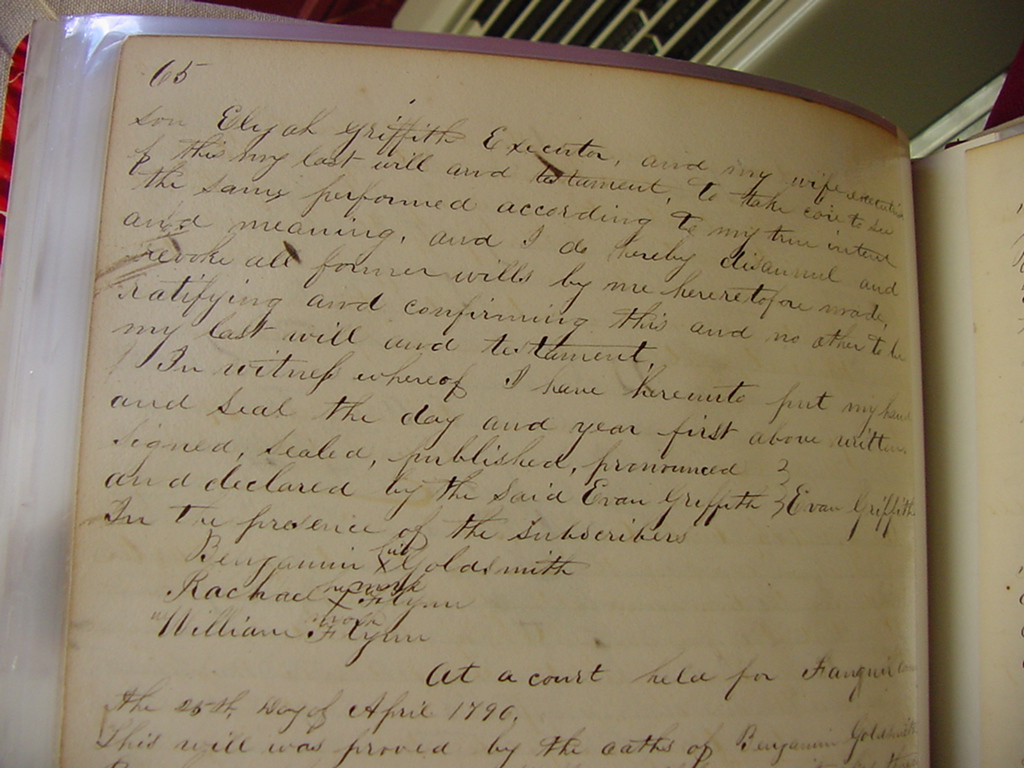 65
son Elijah Griffith Executor, and my wife executrix
to this my last will and testament, to take care to see
the same performed according to my true intent
and meaning, and I do hereby disannul and
revoke all former wills by me heretofore made,
ratifying and confirming this and no other to be
my last will and testament
In witness whereof I have hereunto put my hand
and seal the day and year first above written
signed, sealed, published, pronounced
and declared by the said Evan Griffith } Evan Griffith
In the presence of the subscribers
Benjamin Goldsmith
Rachael
William
At a court held for Fauquier
the 26th day of April 1790,
This will was proved by the oaths of Benjamin Goldsmith